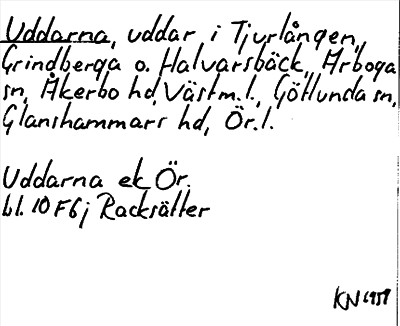 Uddarna, uddar i Tjurlången,
Grindberga o. Halvarsbäck, Arboga
sn, Åkerbo hd, Västm.l., Götlunda sn,
Glanshammars hd, Ör.l.
Uddarna ek Ör.
bl. 10F6j Racksätter
KN 1959